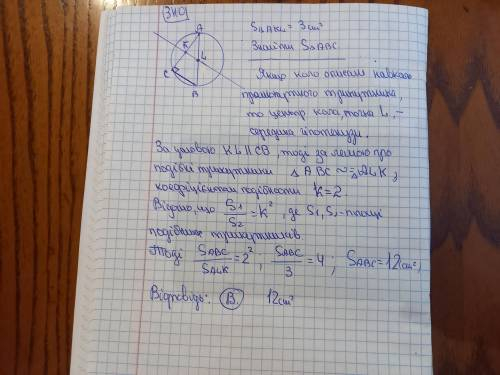 ЗНО
S△AKL = 3 см²
Знайти S△ABC
A
K
L
C
B
Якщо коло описане навколо
прямокутного трикутника,
то центр кола, точка L, –
середина гіпотенузи.
За умовою KL || CB, тоді за лемою про
подібні трикутники △ABC ~ △ALK,
коефіцієнтом подібності K=2
Відомо, що S1/S2 = K², де S1, S2 – площі
подібних трикутників
Тоді SABC/SALK = 2²; SABC/3 = 4; SABC = 12см²,
Відповідь: В 12см²